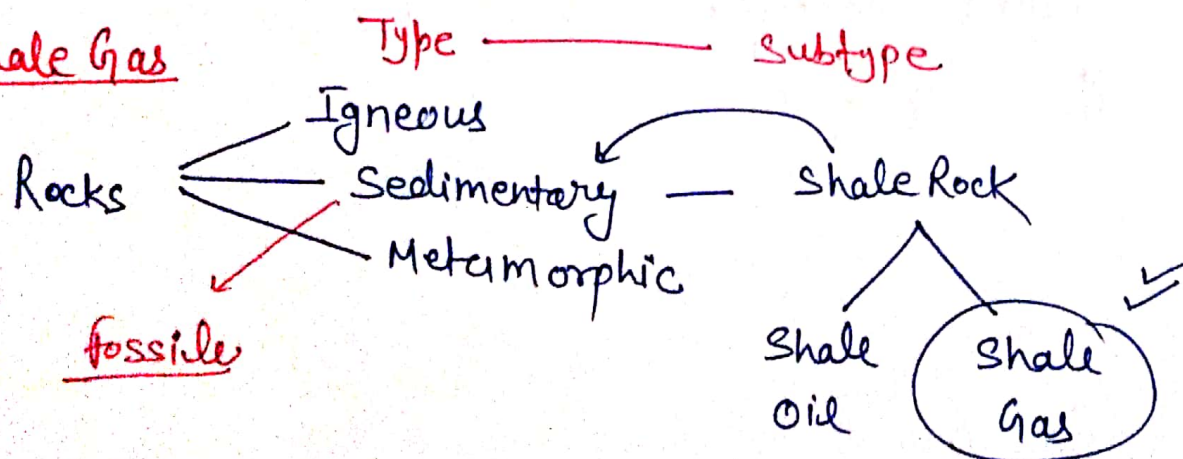 ale Gas
Type Subtype
Igneous
Rocks Sedimentary Shale Rock
Metamorphic
fossile
Shale Oil
Shale Gas